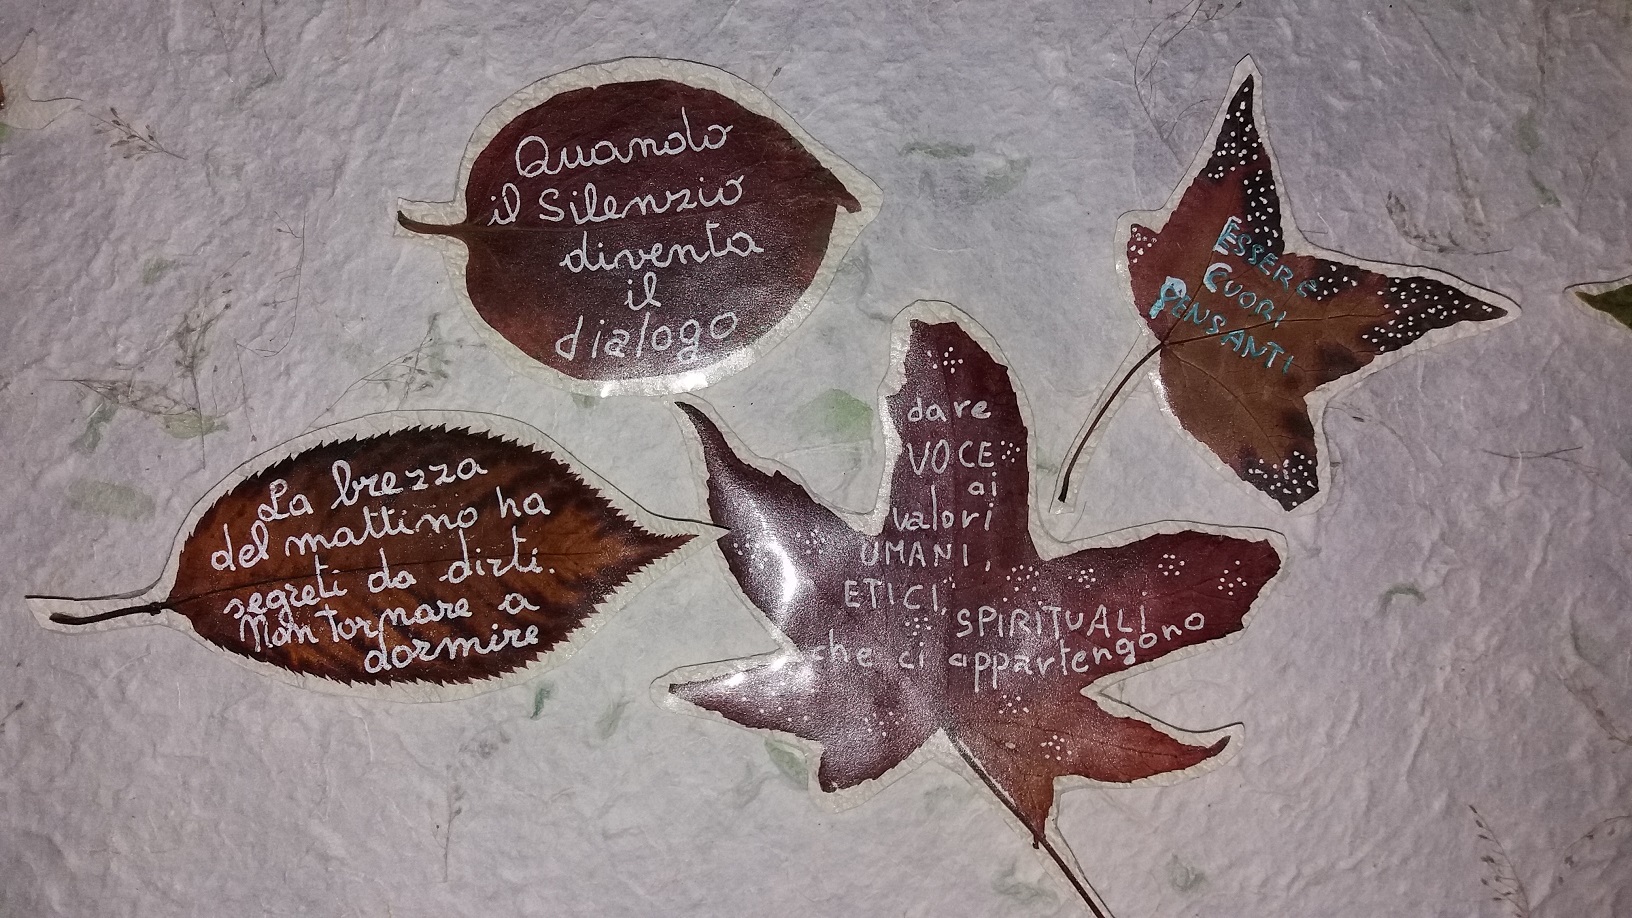 Quando
il Silenzio
diventa
il
dialogo
ESSERE
CUORI
PENSANTI
La brezza
del mattino ha
segreti da dirti.
Non tornare a
dormire
dare
VOCE
ai
valori
UMANI,
ETICI,
SPIRITUALI
che ci appartengono